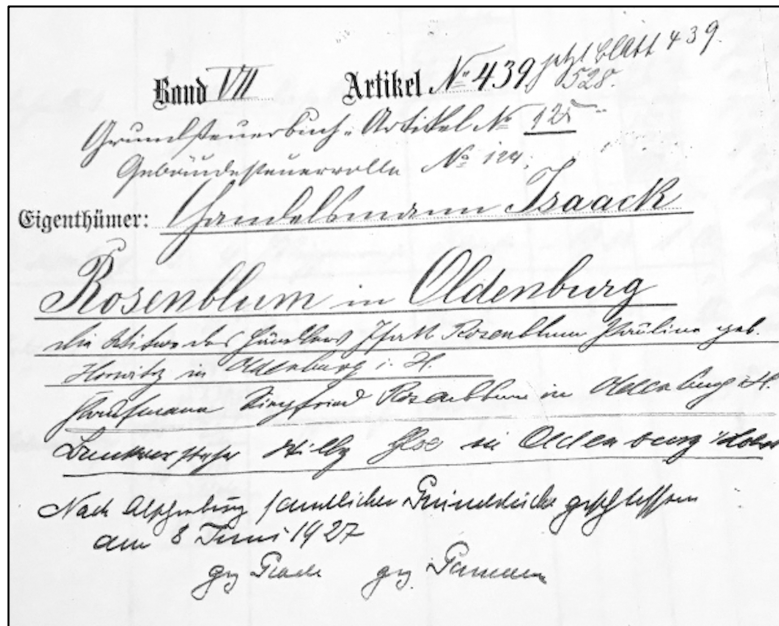 jetzt Blatt 439.
Band VII Artikel No 439 528.
Grundsteuerbuch-Artikel No 125
Gebäudesteuerrolle No 124.
Eigenthümer: Handelsmann Isaack
Rosenblum in Oldenburg
die Witwe des Händlers Isaak Rosenblum Pauline geb.
Horwitz in Oldenburg i. H.
Kaufmann Siegfried Rosenblum in Oldenburg i. H.
Willy in Oldenburg
Nach Abschreibung sämtlicher Grundstücke geschlossen
am 8 Juni 1927
gez gez.